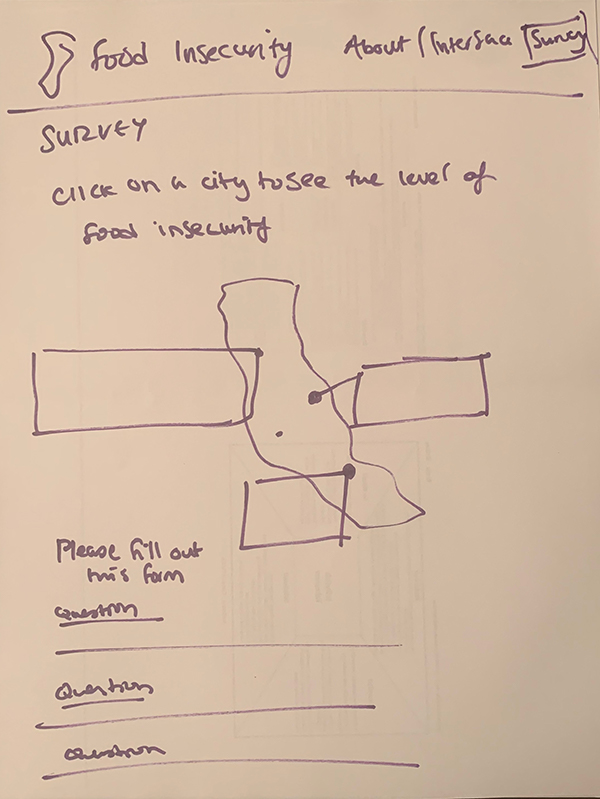 Food Insecurity About / Interface Survey
SURVEY
Click on a city to see the level of
food insecurity
Please fill out
this form
Question
Question
Question